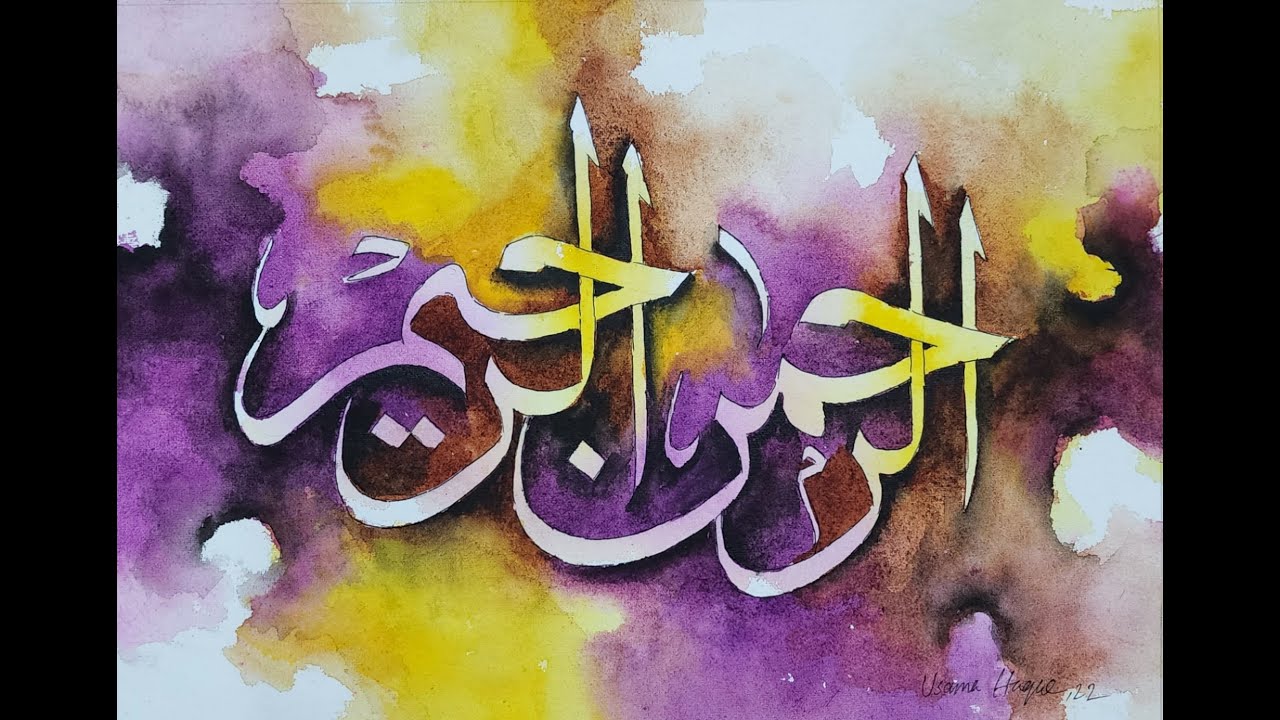 الرحمن الرحيم
Usama Haque, 22